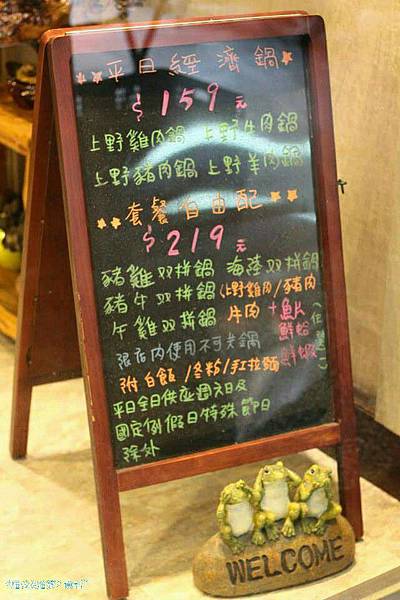 平日經濟鍋
$159元
上野雞肉鍋 上野牛肉鍋
上野豬肉鍋 上野羊肉鍋
套餐自由配
$219元
豬雞双拼鍋 海陸双拼鍋
豬牛双拼鍋 (上野雞肉/豬肉
牛雞双拼鍋 牛肉 + 魚片
鮮蛤
鮮蝦
限店內使用不可共鍋
附白飯/冬粉/紅拉麵
平日全日供應週六日及
國定例假日特殊節日
除外
WELCOME